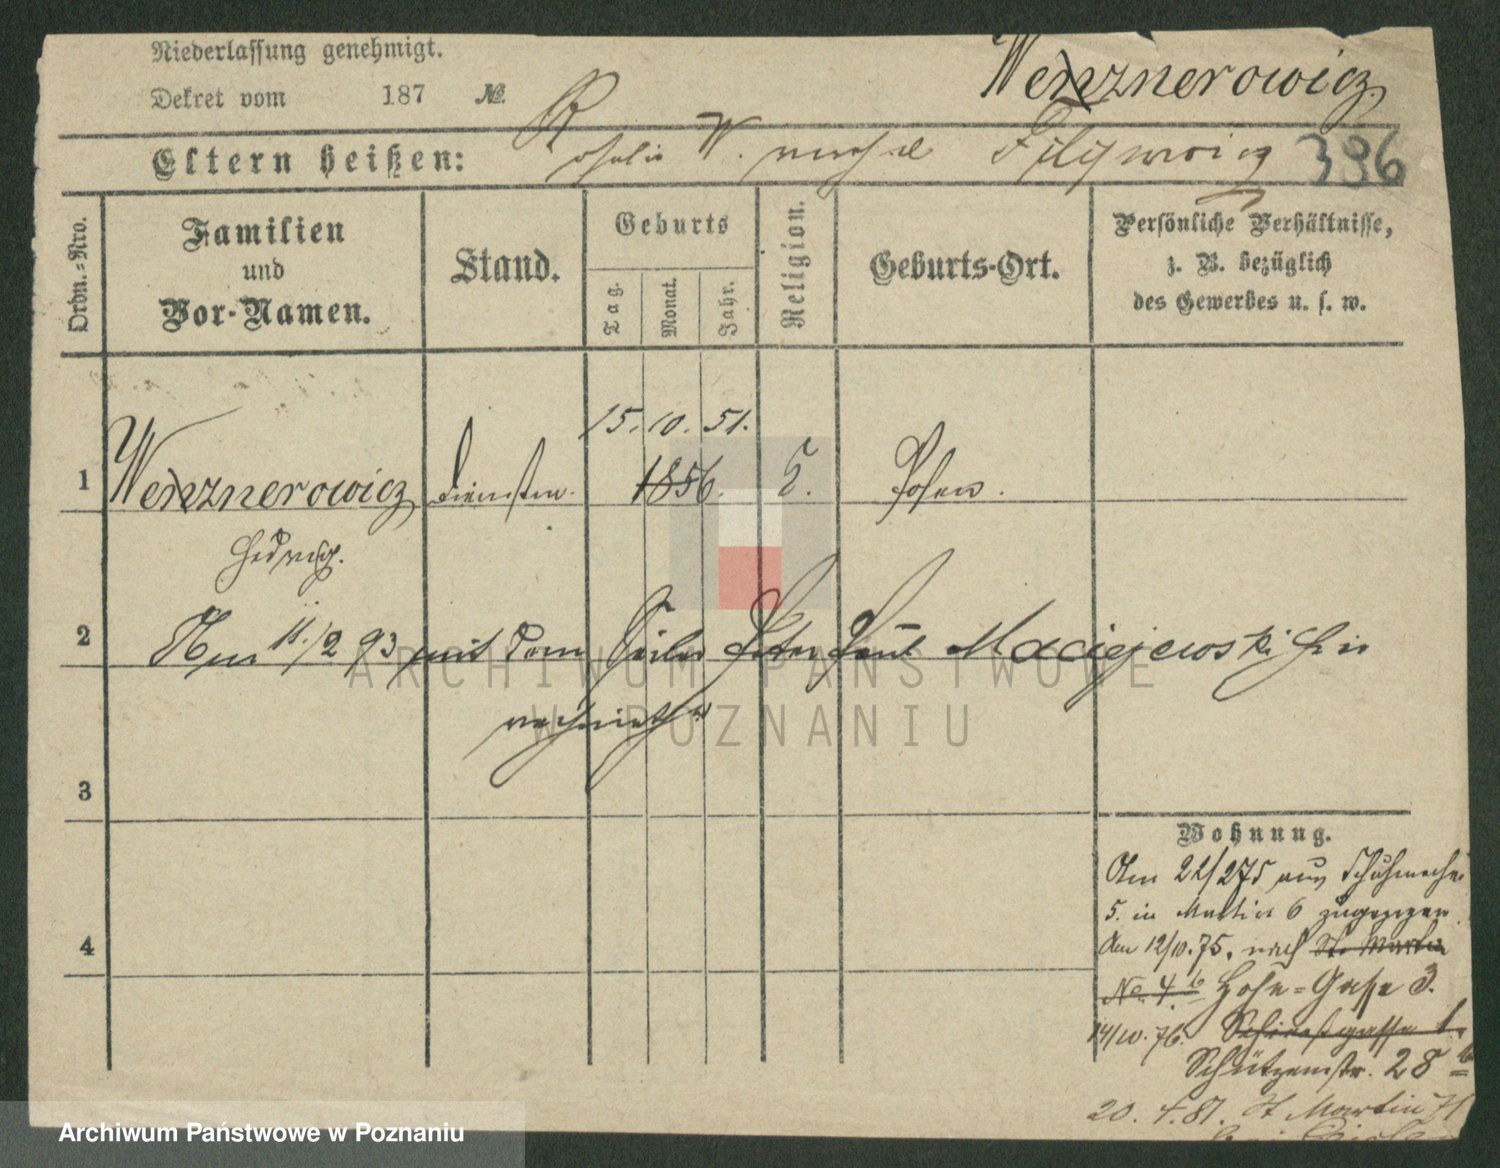 Niederlassung genehmigt.
Dekret vom 187 №.
Wenznerowicz.
Eltern heißen:
Rosalie W.
396
Ordn.=Nro.
Familien
und
Vor-Namen.
Stand.
Geburts
Tag.
Monat.
Jahr.
Religion.
Geburts-Ort.
Persönliche Verhältnisse,
z. B. bezüglich
des Gewerbes u. s. w.
15. 10. 51.
1 Wenznerowicz 1856. Posen.
Hedwig.
2 Am 11./2 93 mit dem Peter Paul Maciejewski hier
verheirathet
ARCHIWUM PAŃSTWOWE
W POZNANIU
3
4
Wohnung.
Am 22/2 75 aus Schuhmacher
5. in Martin 6 zugezogen
Am 12/10. 75. nach St. Martin
No. 4 b Hohe=Gasse 3.
14/10. 76. Schießgasse 1.
Schützenstr. 28 b
20. 4. 81. St Martin
Archiwum Państwowe w Poznaniu